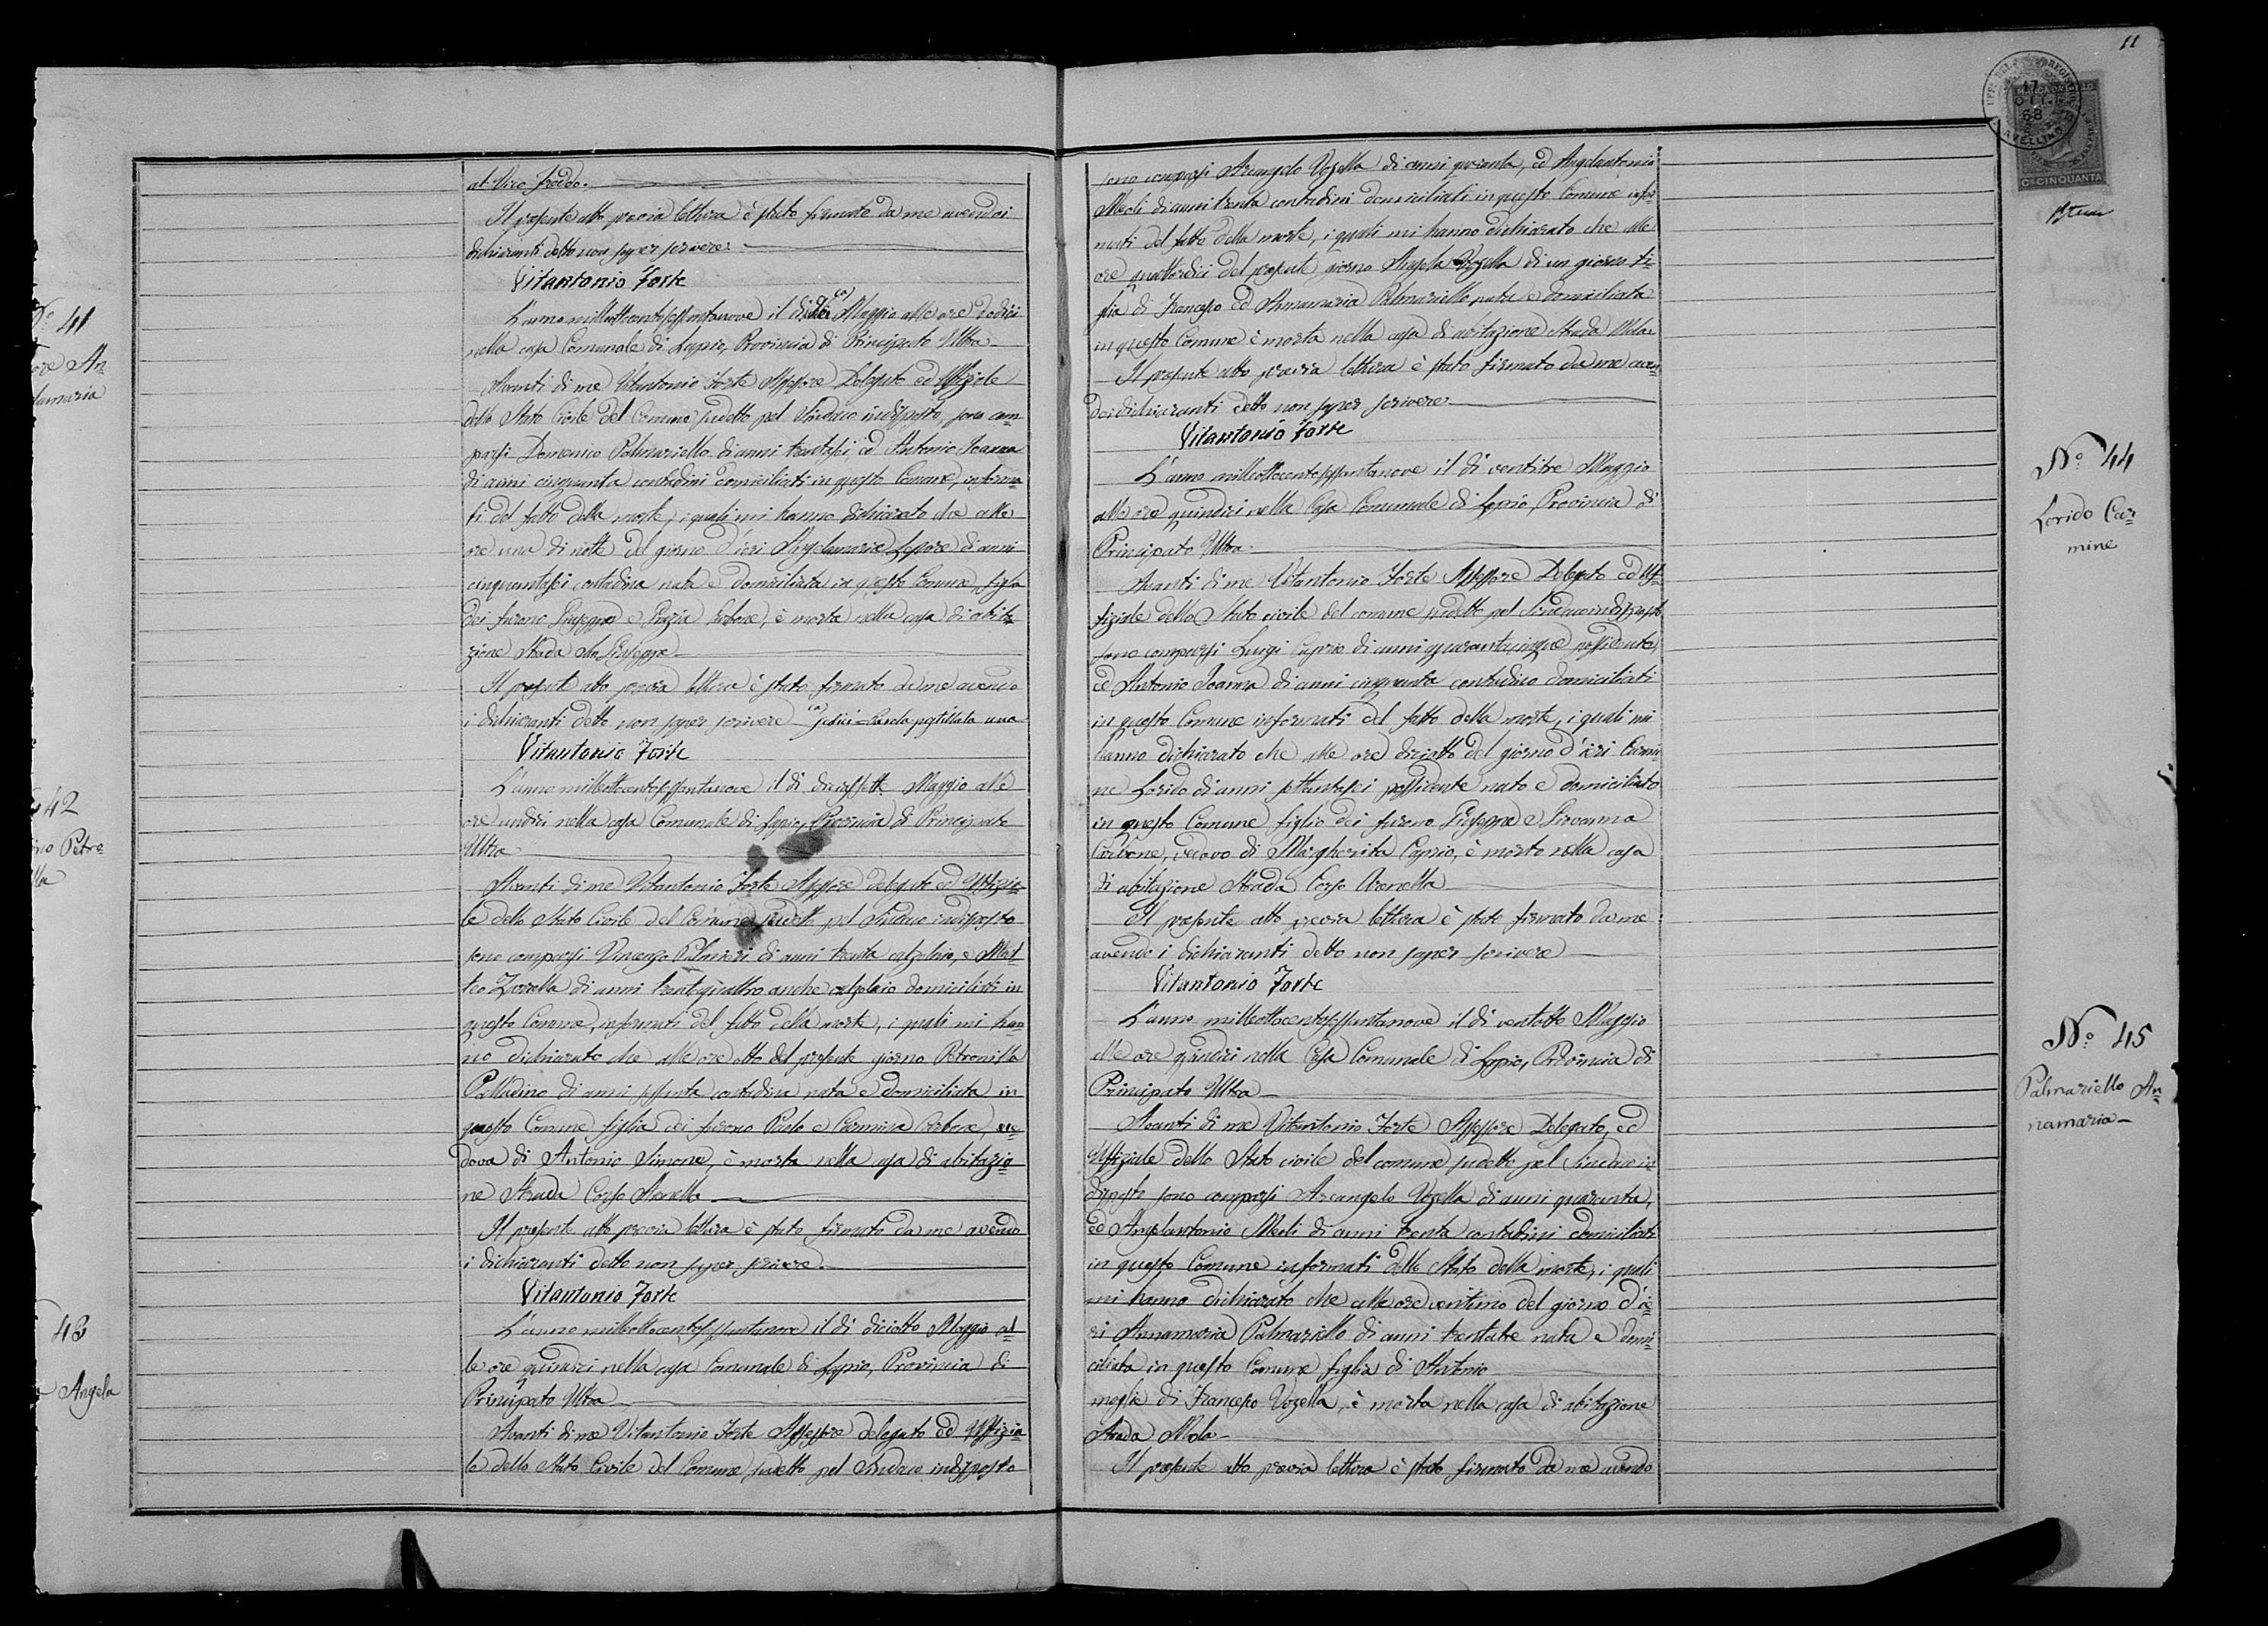 al Vico freddo.
Il presente atto previa lettura è stato firmato da me avendo i
dichiaranti detto non saper scrivere.
Vitantonio Forte
Nº 41
ore An
lamaria
L'anno milleottocentosessantanove il dì (a) Maggio alle ore dodici
nella casa Comunale di Lapio, Provincia di Principato Ultra
Avanti di me Vitantonio Forte Assessore Delegato ed Uffiziale
dello Stato Civile del Comune sudetto pel Sindaco indisposto, sono com-
parsi Domenico Palmariello di anni trentasei, ed Antonio Ioanna
di anni cinquanta contadini domiciliati in questo Comune, informa-
ti del fatto della morte, i quali mi hanno dichiarato che alle
ore una di notte del giorno d'ieri Angelamaria Lepore di anni
cinquantasei contadina nata e domiciliata in questo Comune, figlia
dei furono Giuseppe e Grazia Carbone, è morta nella casa di abita-
zione Strada San Giuseppe
Il presente atto previa lettura è stato firmato da me avendo
i dichiaranti detto non saper scrivere (a) sedici Parola postillata una
Vitantonio Forte
42
ino Petro
lla
L'anno milleottocentosessantanove il dì diciassette Maggio alle
ore undici nella casa Comunale di Lapio, Provincia di Principato
Ultra
Avanti di me Vitantonio Forte Assessore delegato ed Uffizia-
le dello Stato Civile del Comune sudetto pel Sindaco indisposto
sono comparsi Vincenzo Palmieri di anni trenta calzolaio, e Mat-
teo Zorella di anni trentaquattro anche calzolaio domiciliati in
questo Comune, informati del fatto della morte, i quali mi han-
no dichiarato che alle ore otto del presente giorno Petronilla
Palladino di anni sessanta contadina nata e domiciliata in
questo Comune figlia dei furono Paolo e Carmina Carbone, ve-
dova di Antonio Simone, è morta nella casa di abitazio-
ne Strada Corso Arenella
Il presente atto previa lettura è stato firmato da me avendo
i dichiaranti detto non saper scrivere.
Vitantonio Forte
43
Angela
L'anno milleottocentosessantanove il dì diciotto Maggio al-
le ore quindici nella casa Comunale di Lapio, Provincia di
Principato Ultra
Avanti di me Vitantonio Forte Assessore delegato ed Uffizia-
le dello Stato Civile del Comune sudetto pel Sindaco indisposto
11
17
OTT.
68
AVELLINO
Cmi CINQUANTA
sono comparsi Arcangelo Vozella di anni quaranta, ed Angelantonio
Meoli di anni trenta contadini domiciliati in questo Comune infor-
mati del fatto della morte, i quali mi hanno dichiarato che alle
ore quattordici del presente giorno Angela Vozella di un giorno fi-
glia di Francesco ed Annamaria Palmariello nata e domiciliata
in questo Comune è morta nella casa di abitazione Strada Mola
Il presente atto previa lettura è stato firmato da me aven-
do i dichiaranti detto non saper scrivere
Vitantonio Forte
Nº 44
Lorido Car-
mine
L'anno milleottocentosessantanove il dì ventitre Maggio
alle ore quindici nella Casa Comunale di Lapio, Provincia di
Principato Ultra
Avanti di me Vitantonio Forte Assessore Delegato ed Uf-
fiziale dello Stato civile del comune sudetto pel Sindaco indisposto
sono comparsi Luigi Caprio di anni quarantacinque possidente,
ed Antonio Ioanna di anni cinquanta contadino domiciliati
in questo Comune informati del fatto della morte, i quali mi
hanno dichiarato che alle ore diciotto del giorno d'ieri Carmi-
ne Lorido di anni settantasei possidente nato e domiciliato
in questo Comune figlio dei furono Giuseppe e Giovanna
Carbone, vedovo di Margherita Caprio, è morto nella casa
di abitazione Strada Corso Arenella
Il presente atto previa lettura è stato firmato da me
avendo i dichiaranti detto non saper scrivere
Vitantonio Forte
Nº 45
Palmariello An-
namaria
L'anno milleottocentosessantanove il dì ventotto Maggio
alle ore quindici nella Casa Comunale di Lapio, Provincia di
Principato Ultra
Avanti di me Vitantonio Forte Assessore Delegato, ed
Uffiziale dello Stato civile del comune sudetto pel Sindaco in-
disposto sono comparsi Arcangelo Vozella di anni quaranta,
ed Angelantonio Meoli di anni trenta contadini domiciliati
in questo Comune informati dello Stato della morte, i quali
mi hanno dichiarato che alle ore ventuno del giorno d'ie-
ri Annamaria Palmariello di anni trentatre nata e domi-
ciliata in questo Comune figlia di Antonio
moglie di Francesco Vozella, è morta nella casa di abitazione
Strada Mola
Il presente atto previa lettura è stato firmato da me avendo